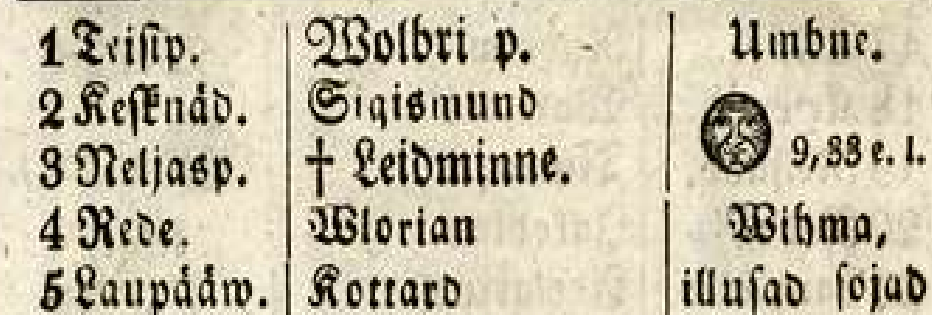 1 Teisip. Wolbri p. Umbne.
2 Kesknäd. Sigismund
3 Neljasp. † Leidminne. 9,33 e. l.
4 Rede. Wlorian Wihma,
5 Laupääw. Kottard illusad sojad